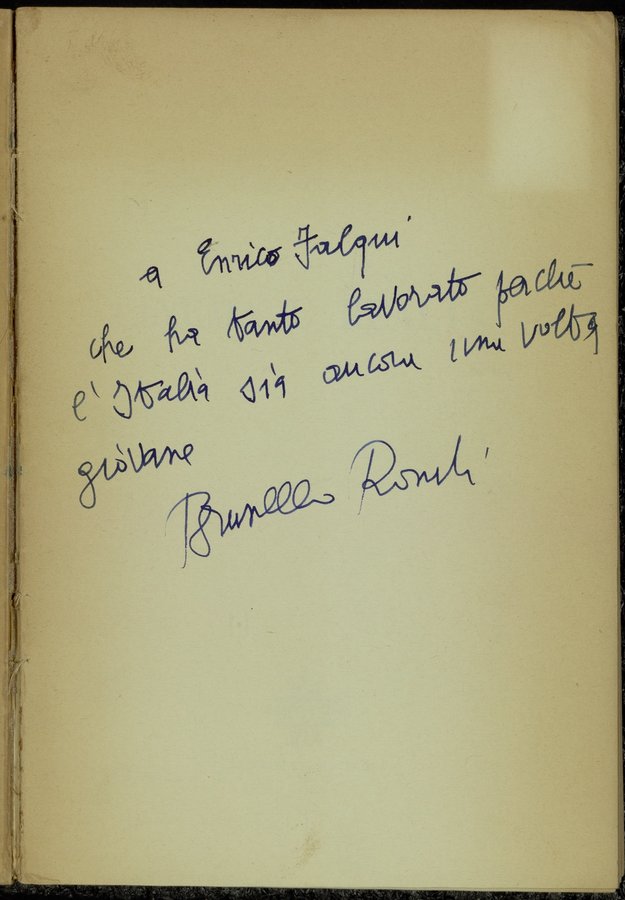 a Enrico Falqui
che ha tanto lavorato perchè
l'Italia sia ancora una volta
giovane
Brunello Rondi